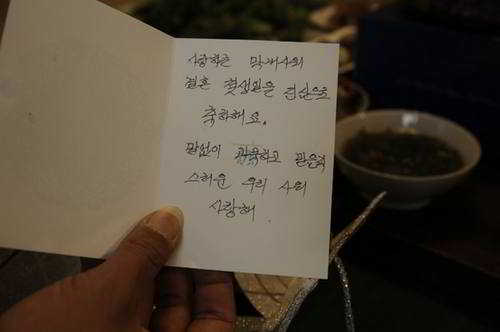 사랑하는 막내사위
결혼 첫생일을 진심으로
축하해요.
말없이 과묵하고 믿음직
스러운 우리 사위
사랑해.